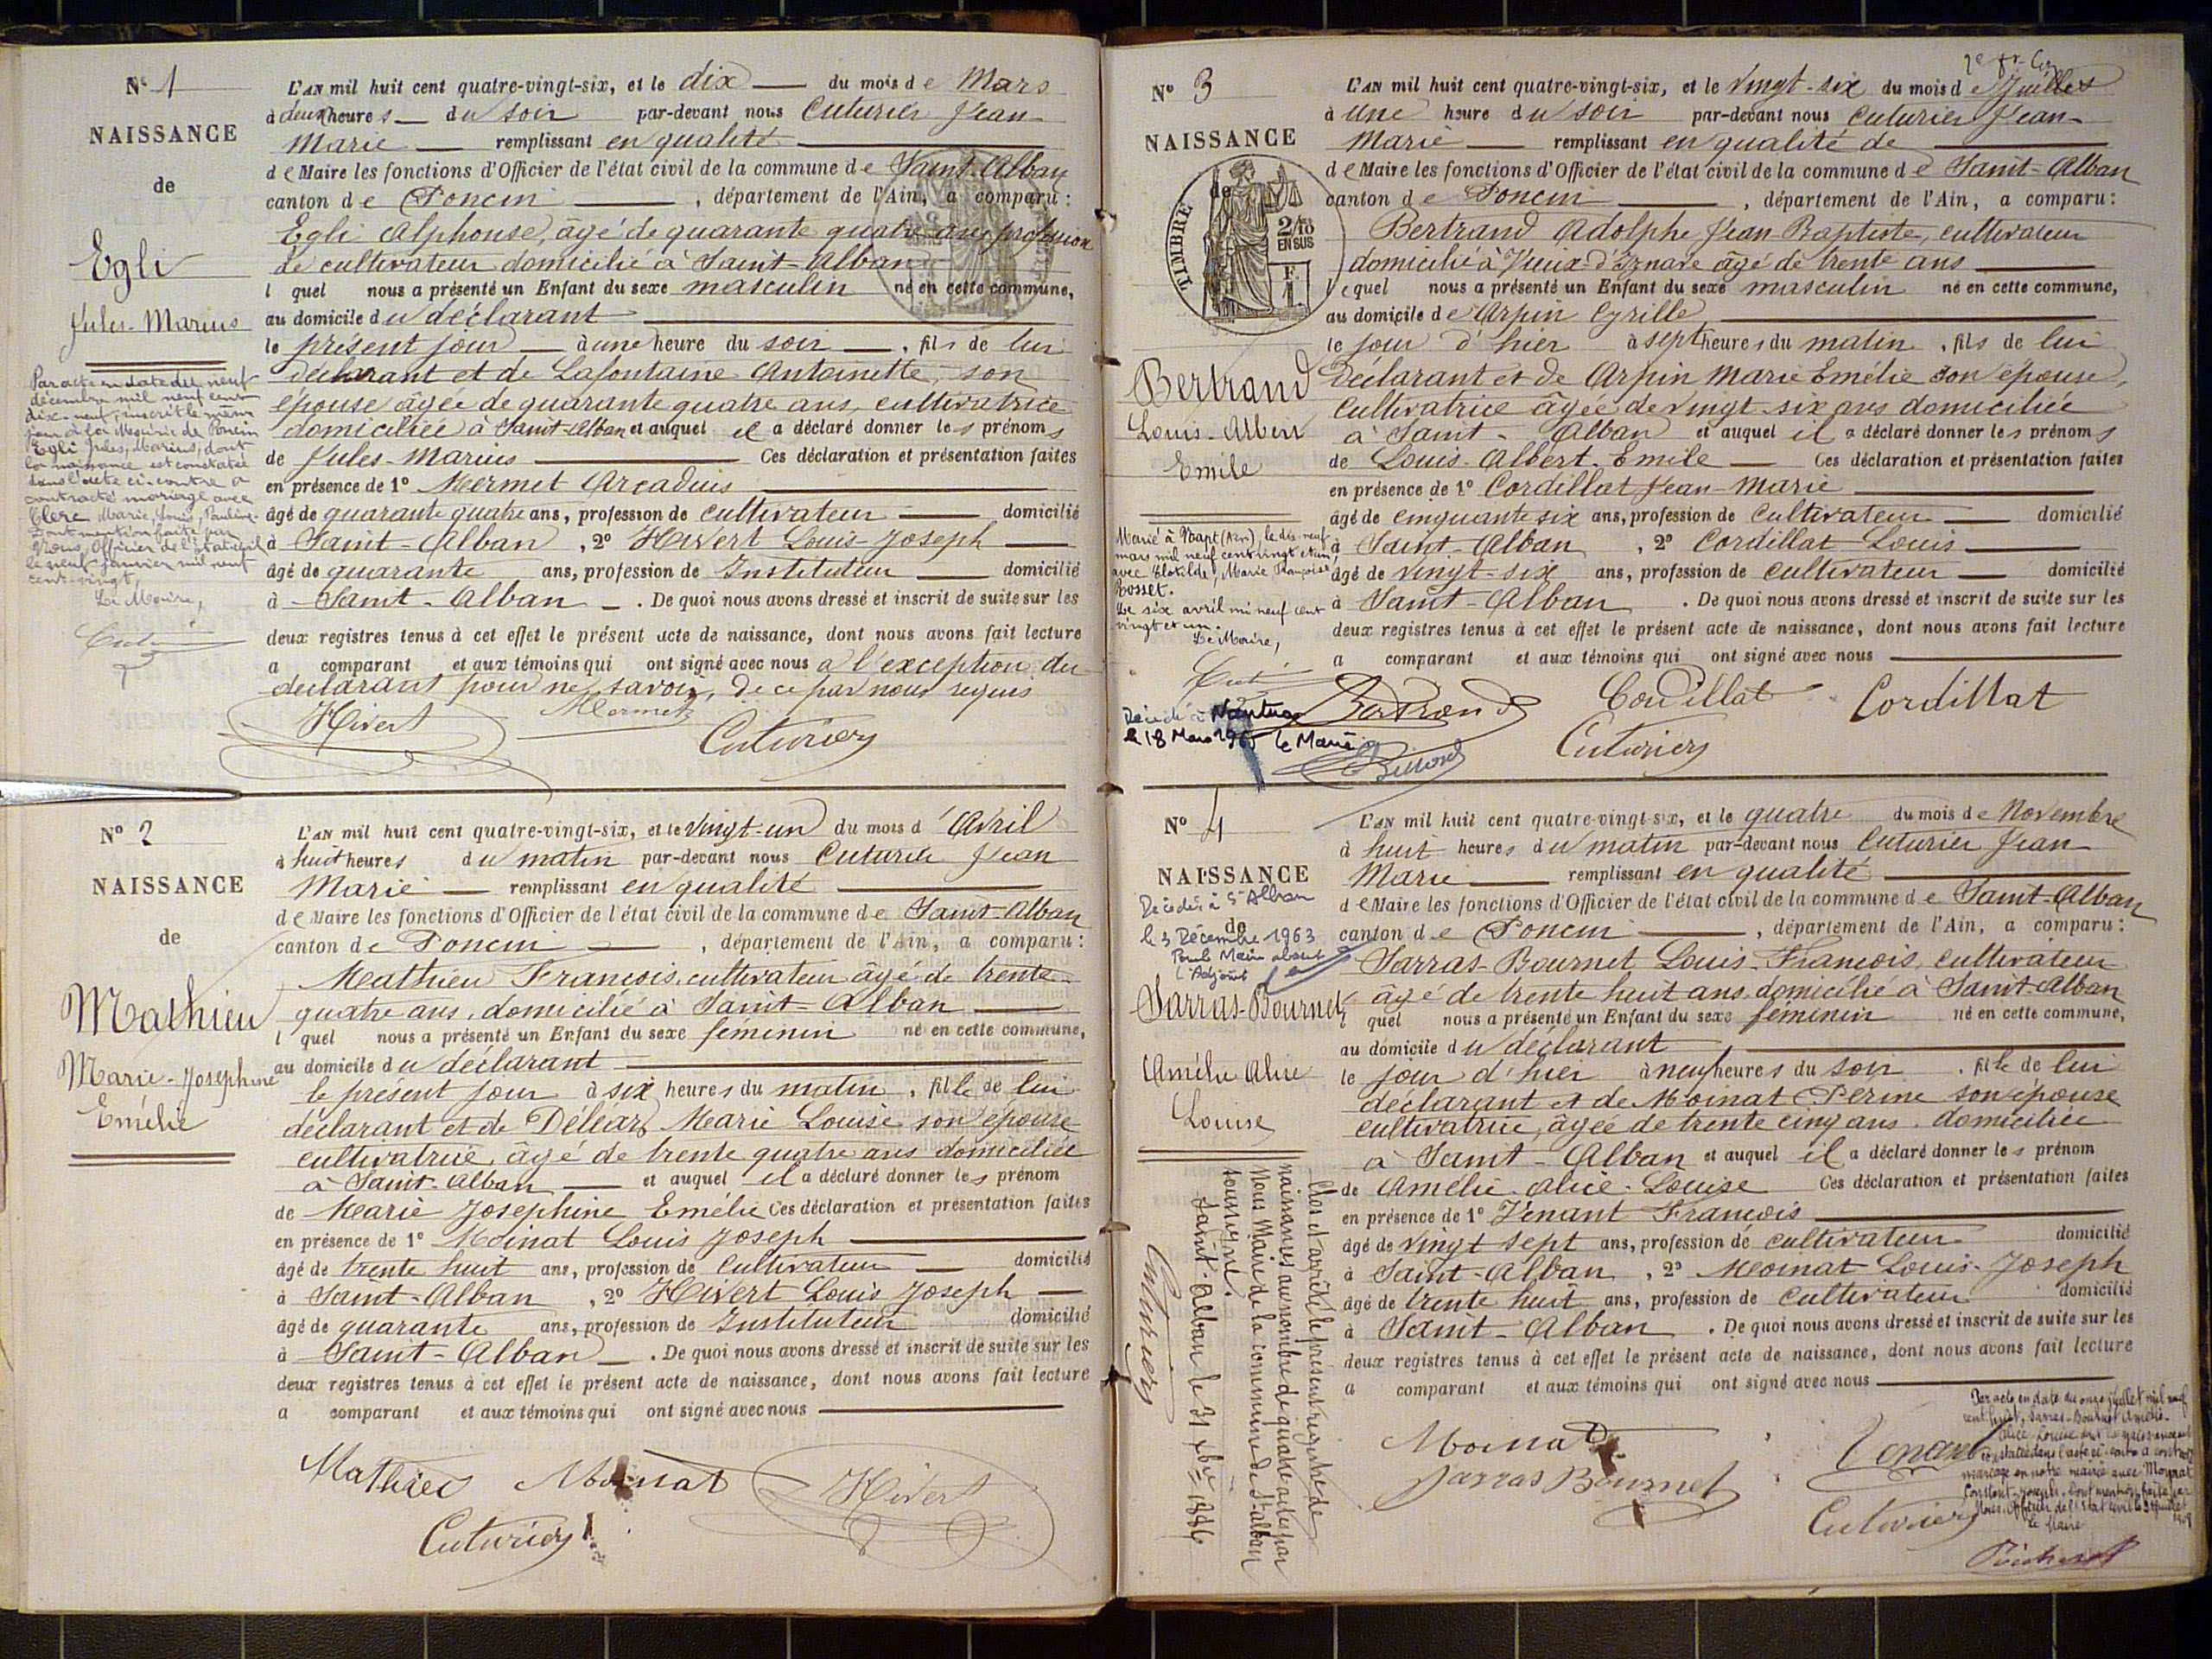 N° 1
NAISSANCE
de
Egli
Jules-Marius
Par acte en date du neuf
décembre mil neuf cent
dix-neuf, inscrit le même
jour à la Mairie de Poncin
Egli Jules, Marius, dont
la naissance est constatée
dans l'acte ci-contre a
contracté mariage avec
Clerc Marie, Louis, Pauline.
Dont mention faite par
Nous, Officier de l'état civil
le neuf janvier mil neuf
cent-vingt,
Le Maire,
L'AN mil huit cent quatre-vingt-six, et le dix du mois de Mars
à deux heures du soir par-devant nous Cuturier Jean
Marie remplissant en qualité
de Maire les fonctions d'Officier de l'état civil de la commune de Saint-Alban
canton de Poncin , département de l'Ain, a comparu :
Egli Alphonse, âgé de quarante quatre ans profession
de cultivateur domicilié à Saint-Alban
l quel nous a présenté un Enfant du sexe masculin né en cette commune,
au domicile du déclarant
le présent jour à une heure du soir , fils de lui
déclarant et de Lafontaine Antoinette, son
épouse âgée de quarante quatre ans, cultivatrice
domiciliée à Saint-Alban et auquel il a déclaré donner les prénoms
de Jules-Marius Ces déclaration et présentation faites
en présence de 1° Mermet Arcadius
âgé de quarante quatre ans, profession de cultivateur domicilié
à Saint-Alban , 2° Hivert Louis-Joseph
âgé de quarante ans, profession de Instituteur domicilié
à Saint-Alban . De quoi nous avons dressé et inscrit de suite sur les
deux registres tenus à cet effet le présent acte de naissance, dont nous avons fait lecture
a comparant et aux témoins qui ont signé avec nous à l'exception du
déclarant pour ne savoir, de ce par nous requis
Hivert Mermet Cuturier
N° 2
NAISSANCE
de
Mathieu
Marie-Joséphine
Emélie
L'AN mil huit cent quatre-vingt-six, et le vingt-un du mois d'Avril
à huit heures du matin par-devant nous Cuturier Jean
Marie remplissant en qualité
de Maire les fonctions d'Officier de l'état civil de la commune de Saint-Alban
canton de Poncin , département de l'Ain, a comparu :
Mathieu François, cultivateur âgé de trente-
quatre ans, domicilié à Saint-Alban
l quel nous a présenté un Enfant du sexe féminin né en cette commune,
au domicile du déclarant
le présent jour à six heures du matin , fille de lui
déclarant et de Marie Louise son épouse
cultivatrice, âgé de trente quatre ans domiciliée
à Saint-Alban et auquel il a déclaré donner les prénom
de Marie Joséphine Emélie Ces déclaration et présentation faites
en présence de 1° Moinat Louis Joseph
âgé de trente huit ans, profession de Cultivateur domicilié
à Saint-Alban , 2° Hivert Louis Joseph
âgé de quarante ans, profession de Instituteur domicilié
à Saint-Alban . De quoi nous avons dressé et inscrit de suite sur les
deux registres tenus à cet effet le présent acte de naissance, dont nous avons fait lecture
a comparant et aux témoins qui ont signé avec nous
Mathieu Moinat Hivert
Cuturier
N° 3
NAISSANCE
de
TIMBRE
2/10
EN SUS
Bertrand
Louis-Albert
Emile
Marié à Nant (Ain), le dix-neuf
mars mil neuf cent vingt et un,
avec Clotilde, Marie, Françoise
Rosset.
Le six avril mi neuf cent
vingt et un.
Le Maire,
Décédé à Nantua
le 18 Mars Le Maire
L'AN mil huit cent quatre-vingt-six, et le vingt-six du mois de Juillet
à une heure du soir par-devant nous Cuturier Jean
Marie remplissant en qualité de
de Maire les fonctions d'Officier de l'état civil de la commune de Saint-Alban
canton de Poncin , département de l'Ain, a comparu :
Bertrand Adolphe Jean Baptiste, cultivateur
domicilié à Vieux-d'Iznave âgé de trente ans
lequel nous a présenté un Enfant du sexe masculin né en cette commune,
au domicile de Arpin Cyrille
le jour d'hier à sept heures du matin , fils de lui
Déclarant et de Arpin Marie Emélie son épouse,
Cultivatrice âgée de vingt-six ans domiciliée
à Saint-Alban et auquel il a déclaré donner les prénoms
de Louis-Albert-Emile Ces déclaration et présentation faites
en présence de 1° Cordillat Jean-Marie
âgé de cinquante six ans, profession de Cultivateur domicilié
à Saint-Alban , 2° Cordillat Louis
âgé de vingt-six ans, profession de cultivateur domicilié
à Saint-Alban . De quoi nous avons dressé et inscrit de suite sur les
deux registres tenus à cet effet le présent acte de naissance, dont nous avons fait lecture
a comparant et aux témoins qui ont signé avec nous
Bertrand Cordillat Cordillat
Cuturier
N° 4
NAISSANCE
de
Décédée à St Alban
le 3 Décembre 1963
Pour le Maire absent
l'Adjoint
Sarras-Bournet
Amélie Alice
Louise
L'AN mil huit cent quatre-vingt-six, et le quatre du mois de Novembre
à huit heures du matin par-devant nous Cuturier Jean
Marie remplissant en qualité
de Maire les fonctions d'Officier de l'état civil de la commune de Saint-Alban
canton de Poncin , département de l'Ain, a comparu :
Sarras-Bournet Louis-François, cultivateur
âgé de trente huit ans domicilié à Saint-Alban
l quel nous a présenté un Enfant du sexe féminin né en cette commune,
au domicile du déclarant
le jour d'hier à neuf heures du soir , fille de lui
déclarant et de Moinat Perine son épouse
cultivatrice, âgée de trente cinq ans domiciliée
à Saint-Alban et auquel il a déclaré donner les prénom
de Amélie-Alice-Louise Ces déclaration et présentation faites
en présence de 1° Vénant François
âgé de vingt sept ans, profession de cultivateur domicilié
à Saint-Alban , 2° Moinat Louis-Joseph
âgé de trente huit ans, profession de Cultivateur domicilié
à Saint-Alban . De quoi nous avons dressé et inscrit de suite sur les
deux registres tenus à cet effet le présent acte de naissance, dont nous avons fait lecture
a comparant et aux témoins qui ont signé avec nous
Moinat Vénant
Sarras Bournet
Cuturier
Clos et arrêté le présent registre de
naissances au nombre de quatre actes par
Nous Maire de la commune de St-alban
soussigné.
Saint-Alban le 31 Xbre 1886
Cuturier
Par acte en date du onze juillet mil neuf
cent huit, Sarras-Bournet Amélie-
Alice-Louise dont la naissance est
constatée dans l'acte ci-contre a contracté
mariage en notre mairie avec
Constant-Joseph. Dont mention faite par
Nous, Officier de l'état civil le
Le Maire